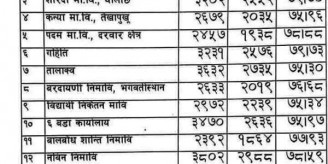 ४ कन्या मा.वि., तेखापुखु २६७९ २०३५ ७५।९६
५ पदम मा.वि., दरवार क्षेत्र २४५७ १९३८ ७८।८८
६ गहिति ३२३१ २५७६ ७९।७३
७ तालाक्व ३६३२ २७३५ ७५।३०
८ बरदायणी निमावि, भगवतीस्थान २६३३ २०१९ ७६।६८
९ विद्यार्थी निकेतन मावि २९७२ २२३९ ७५।३४
१० ६ वडा कार्यालय ३४७० २६३६ ७५।९७
११ बालबोध शान्ति निमावि २३९२ १८६४ ७७।९३
१२ नविन निमावि ३८०२